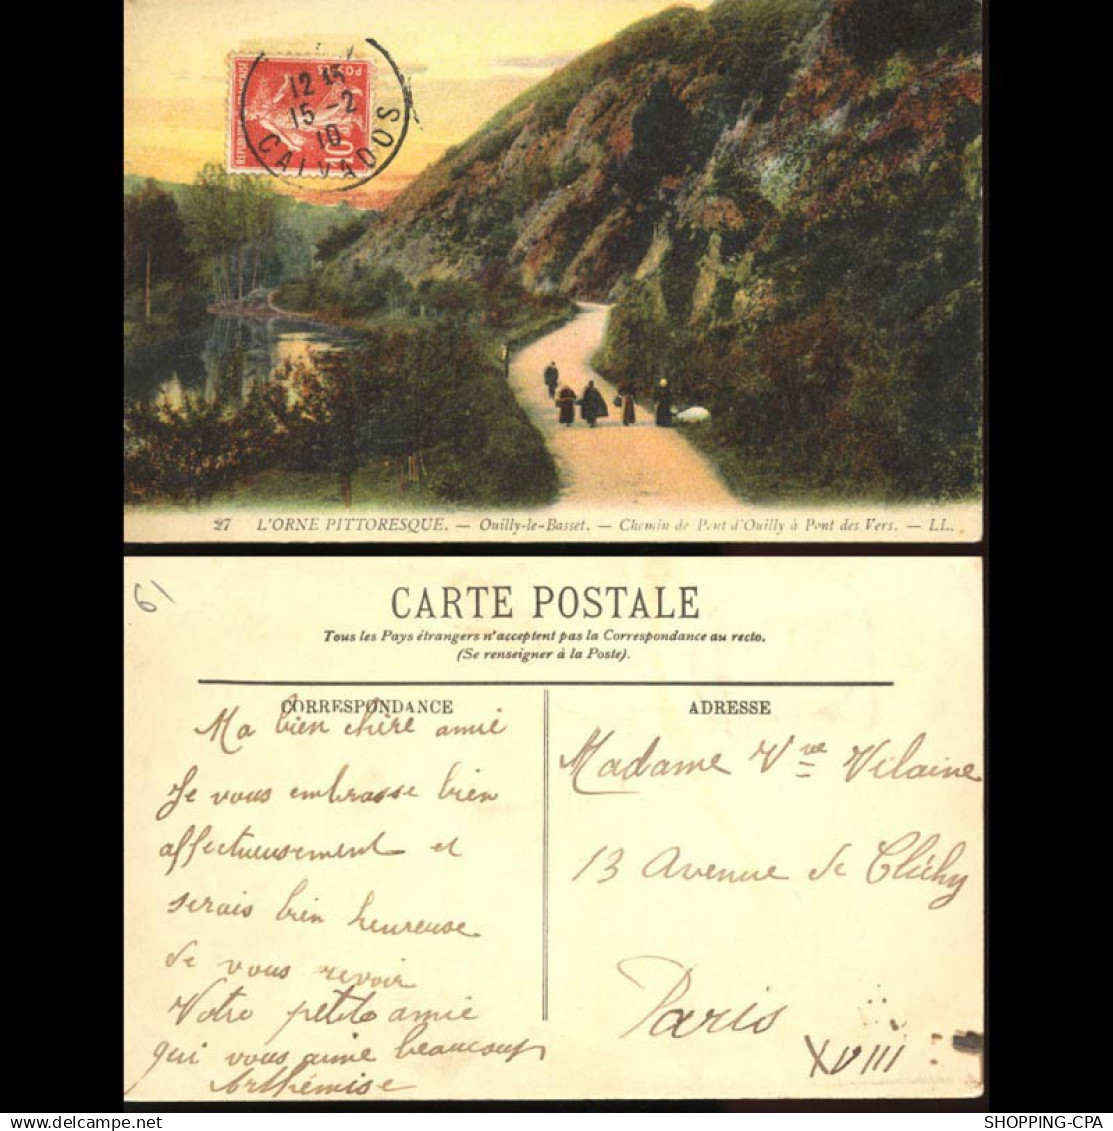 REPUBLIQUE FRANÇAISE
POSTES
10
12
15 -2
10
CALVADOS
27 L'ORNE PITTORESQUE. — Ouilly-le-Basset. — Chemin de Pont d'Ouilly à Pont des Vers. — LL.
61
CARTE POSTALE
Tous les Pays étrangers n'acceptent pas la Correspondance au recto.
(Se renseigner à la Poste).
CORRESPONDANCE
Ma bien chère amie
Je vous embrasse bien
affectueusement et
serais bien heureuse
de vous revoir
Votre petite amie
qui vous aime beaucoup
Arthémise
ADRESSE
Madame Vve Vilaine
13 Avenue de Clichy
Paris
XVIII
SHOPPING-CPA